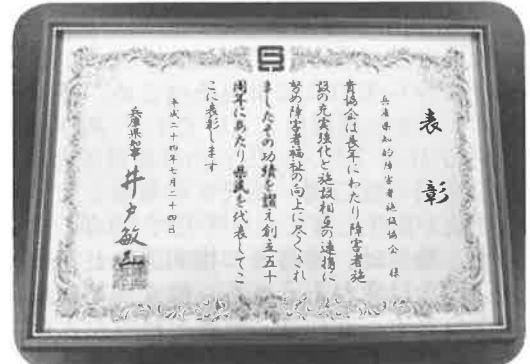 表彰
兵庫県知的障害者施設協会 様
貴協会は長年にわたり障害者施
設の充実強化と施設相互の連携に
努め障害者福祉の向上に尽くされ
ましたその功績を讃え創立五十
周年にあたり県民を代表してこ
こに表彰します
平成二十四年七月二十四日
兵庫県知事 井戸敏三